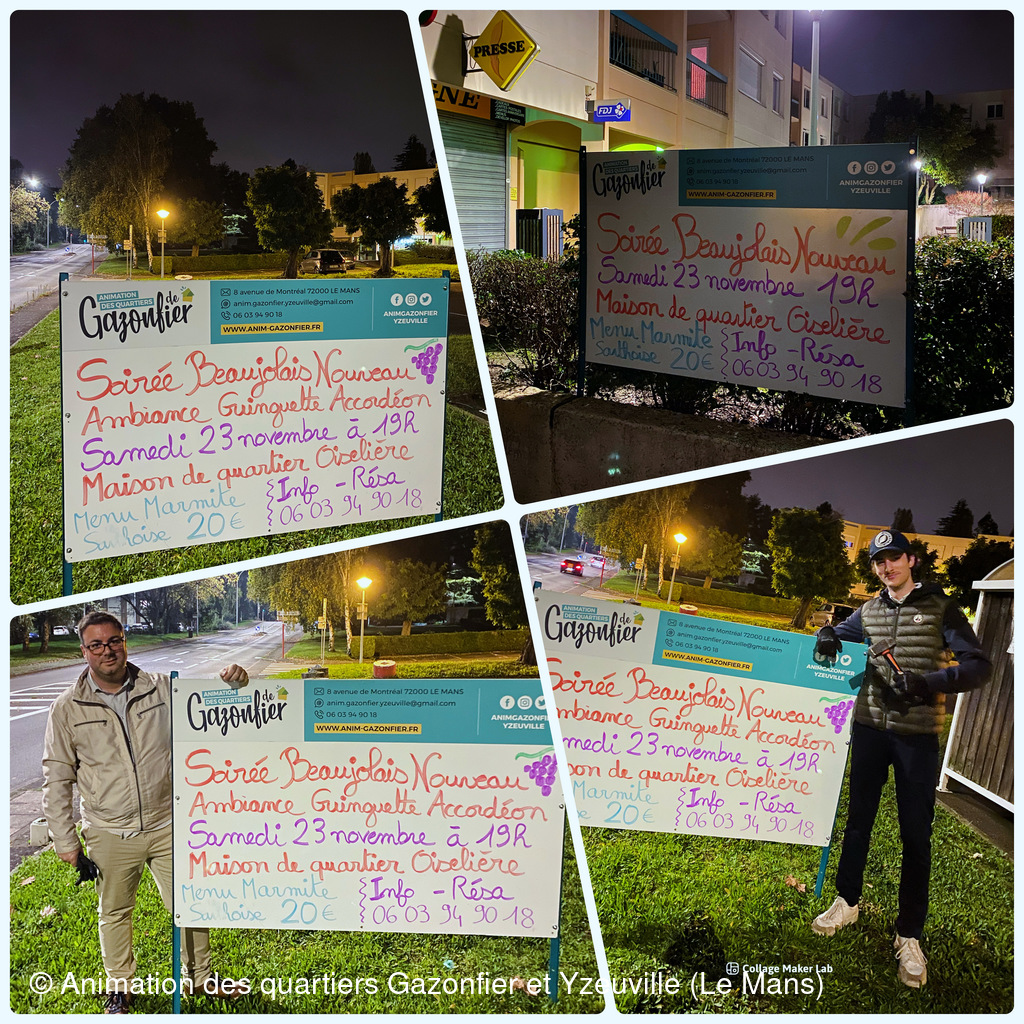 ANIMATION
DES QUARTIERS
de
Gazonfier
8 avenue de Montréal 72000 LE MANS
anim.gazonfier.yzeuville@gmail.com
06 03 94 90 18
WWW.ANIM-GAZONFIER.FR
ANIMGAZONFIER
YZEUVILLE
Soirée Beaujolais Nouveau
Ambiance Guinguette Accordéon
Samedi 23 novembre à 19h
Maison de quartier Oiselière
Menu Marmite
Sarthoise 20€
Info - Résa
06 03 94 90 18
PRESSE
GNE
FDJ
ANIMATION
DES QUARTIERS
de
Gazonfier
8 avenue de Montréal 72000 LE MANS
anim.gazonfier.yzeuville@gmail.com
06 03 94 90 18
WWW.ANIM-GAZONFIER.FR
ANIMGAZONFIER
YZEUVILLE
Soirée Beaujolais Nouveau
Samedi 23 novembre 19h
Maison de quartier Oiselière
Menu Marmite
Sarthoise 20€
Info - Résa
06 03 94 90 18
ANIMATION
DES QUARTIERS
de
Gazonfier
8 avenue de Montréal 72000 LE MANS
anim.gazonfier.yzeuville@gmail.com
06 03 94 90 18
WWW.ANIM-GAZONFIER.FR
ANIMGAZONFI
YZEUVILLE
Soirée Beaujolais Nouveau
Ambiance Guinguette Accordéon
Samedi 23 novembre à 19h
Maison de quartier Oiselière
Menu Marmite
Sarthoise 20€
Info - Résa
06 03 94 90 18
ANIMATION
DES QUARTIERS
de
Gazonfier
8 avenue de Montréal 72000 LE MANS
anim.gazonfier.yzeuville@gmail.com
06 03 94 90 18
WWW.ANIM-GAZONFIER.FR
YZEUVILLE
Soirée Beaujolais Nouveau
mbiance Guinguette Accordéon
medi 23 novembre à 19h
son de quartier Oiselière
Marmite
oise 20€
Info - Résa
06 03 94 90 18
Collage Maker Lab
© Animation des quartiers Gazonfier et Yzeuville (Le Mans)